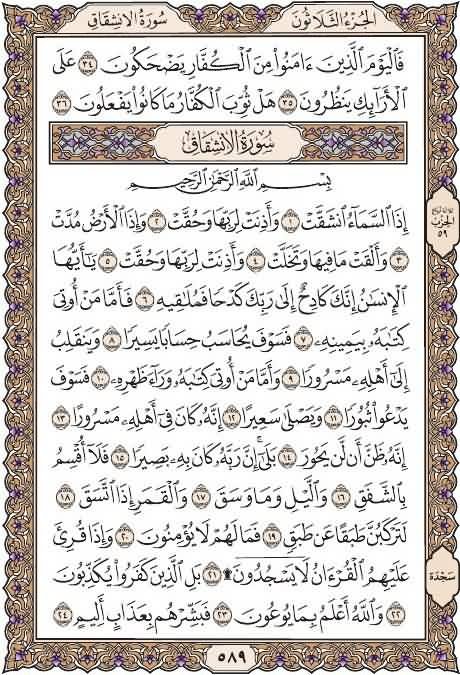 سُورَةُ الانشِقَاق
الجُزءُ الثَّلَاثُونَ
فَالْيَوْمَ الَّذِينَ ءَامَنُوا مِنَ الْكُفَّارِ يَضْحَكُونَ ٣٤ عَلَى
الْأَرَآئِكِ يَنظُرُونَ ٣٥ هَلْ ثُوِّبَ الْكُفَّارُ مَا كَانُوا يَفْعَلُونَ ٣٦
سُورَةُ الانشِقَاقِ
بِسْمِ اللَّهِ الرَّحْمَٰنِ الرَّحِيمِ
إِذَا السَّمَآءُ انشَقَّتْ ١ وَأَذِنَتْ لِرَبِّهَا وَحُقَّتْ ٢ وَإِذَا الْأَرْضُ مُدَّتْ
٣ وَأَلْقَتْ مَا فِيهَا وَتَخَلَّتْ ٤ وَأَذِنَتْ لِرَبِّهَا وَحُقَّتْ ٥ يَٰٓأَيُّهَا
الْإِنسَٰنُ إِنَّكَ كَادِحٌ إِلَىٰ رَبِّكَ كَدْحًا فَمُلَٰقِيهِ ٦ فَأَمَّا مَنْ أُوتِيَ
كِتَٰبَهُۥ بِيَمِينِهِۦ ٧ فَسَوْفَ يُحَاسَبُ حِسَابًا يَسِيرًا ٨ وَيَنقَلِبُ
إِلَىٰٓ أَهْلِهِۦ مَسْرُورًا ٩ وَأَمَّا مَنْ أُوتِيَ كِتَٰبَهُۥ وَرَآءَ ظَهْرِهِۦ ١٠ فَسَوْفَ
يَدْعُوا ثُبُورًا ١١ وَيَصْلَىٰ سَعِيرًا ١٢ إِنَّهُۥ كَانَ فِيٓ أَهْلِهِۦ مَسْرُورًا ١٣
إِنَّهُۥ ظَنَّ أَن لَّن يَحُورَ ١٤ بَلَىٰٓ إِنَّ رَبَّهُۥ كَانَ بِهِۦ بَصِيرًا ١٥ فَلَآ أُقْسِمُ
بِالشَّفَقِ ١٦ وَالَّيْلِ وَمَا وَسَقَ ١٧ وَالْقَمَرِ إِذَا اتَّسَقَ ١٨
لَتَرْكَبُنَّ طَبَقًا عَن طَبَقٍ ١٩ فَمَا لَهُمْ لَا يُؤْمِنُونَ ٢٠ وَإِذَا قُرِئَ
عَلَيْهِمُ الْقُرْءَانُ لَا يَسْجُدُونَ ۩ ٢١ بَلِ الَّذِينَ كَفَرُوا يُكَذِّبُونَ
٢٢ وَاللَّهُ أَعْلَمُ بِمَا يُوعُونَ ٢٣ فَبَشِّرْهُم بِعَذَابٍ أَلِيمٍ ٢٤
الحِزب
٥٩
سَجْدَة
٥٨٩